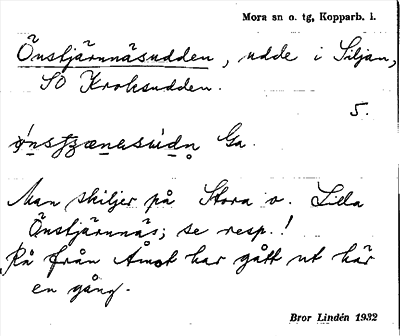 Mora sn o. tg, Kopparb. l.
Önstjärnnäsudden, udde i Siljan,
SO Kroksudden.
5.
Ga.
Man skiljer på Stora o. Lilla
Önstjärnnäs; se resp.!
Rå från Åmot har gått ut här
en gång.
Bror Lindén 1932